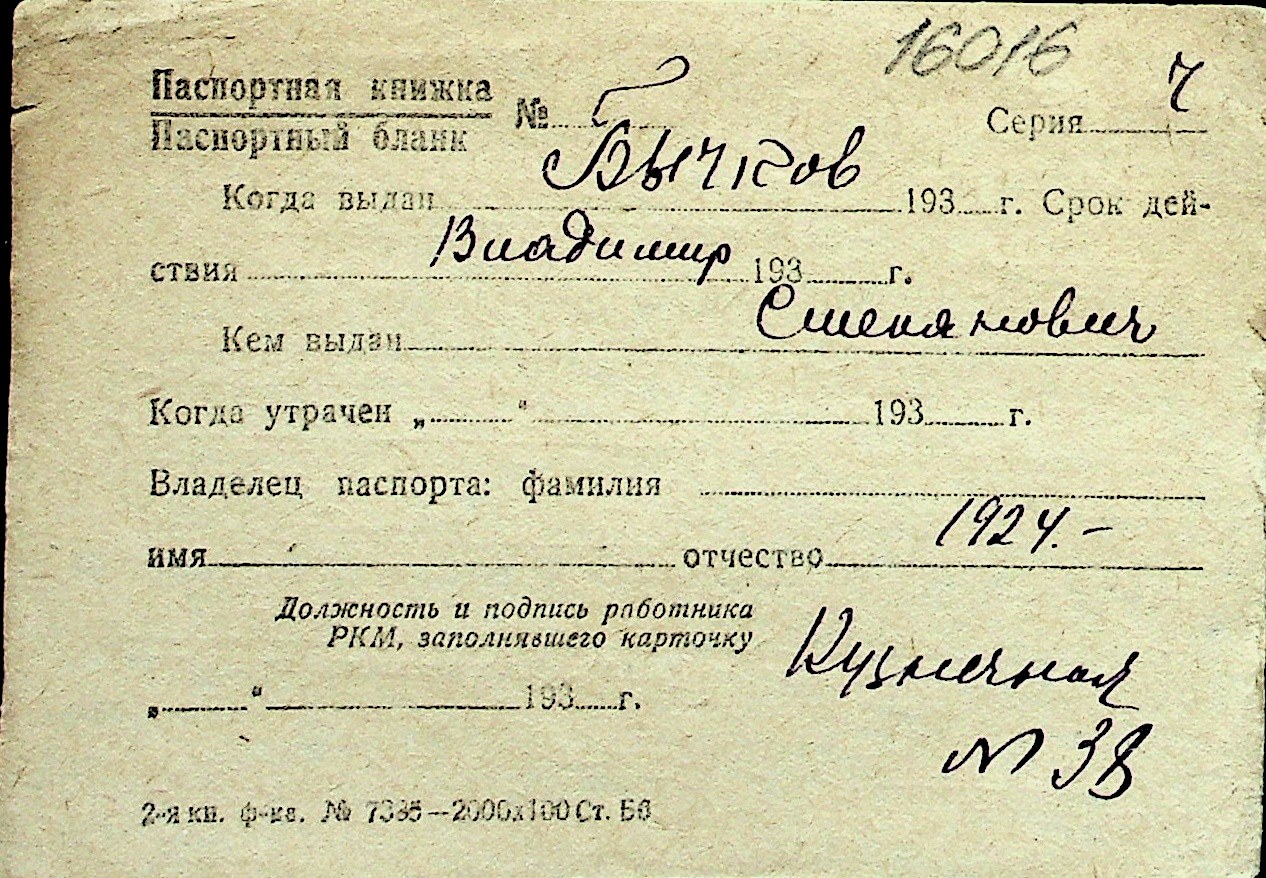 16016
Паспортная книжка
Паспортный бланк № Серия 7
Бычков
Когда выдан 193 г. Срок дей-
Владимир
ствия 193 г.
Степанович
Кем выдан
Когда утрачен „ “ 193 г.
Владелец паспорта: фамилия
1924.-
имя отчество
Должность и подпись работника
РКМ, заполнявшего карточку
Кузнечная
„ “ 193 г.
№ 38
2-я кн. ф-ка. № 7385—2000х100 Ст. Бб